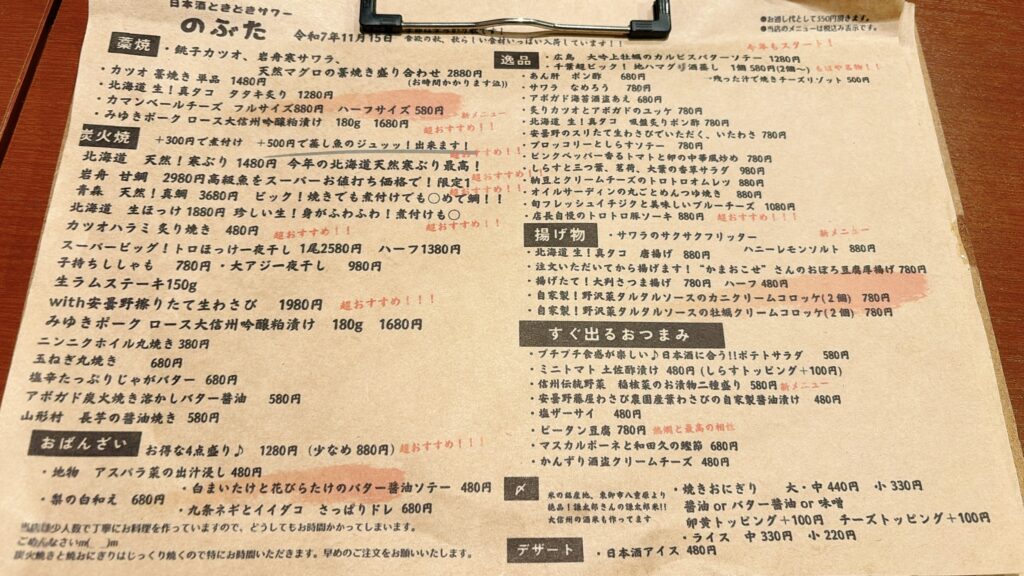 日本酒ときどきサワー
のぶた
令和7年11月15日
●お通し代として350円頂きます。
●当店のメニューは税込み表示です。
藁焼
・銚子カツオ、岩舟寒サワラ、
天然マグロの藁焼き盛り合わせ 2880円
・カツオ 藁焼き 単品 1480円
(お時間かかります泣))
・北海道 生！真タコ タタキ炙り 1280円
・カマンベールチーズ フルサイズ880円 ハーフサイズ 580円
新メニュー
・みゆきポーク ロース大信州吟醸粕漬け 180g 1680円
超おすすめ！！
炭火焼 +300円で煮付け +500円で蒸し魚のジュッッ！出来ます！
北海道 天然！寒ぶり 1480円 今年の北海道天然寒ぶり最高！
岩舟 甘鯛 2980円高級魚をスーパーお値打ち価格で！限定！
青森 天然！真鯛 3680円 ビック！焼きでも煮付けでも〇めで鯛！！
北海道 生ほっけ 1880円 珍しい生！身がふわふわ！煮付けも〇
カツオハラミ 炙り焼き 480円 超おすすめ！！
スーパービッグ！トロほっけ一夜干し 1尾2580円 ハーフ1380円
子持ちししゃも 780円 ・大アジ一夜干し 980円
生ラムステーキ150g
with安曇野擦りたて生わさび 1980円 超おすすめ！！！
みゆきポーク ロース大信州吟醸粕漬け 180g 1680円
ニンニクホイル丸焼き 380円
玉ねぎ丸焼き 680円
塩辛たっぷりじゃがバター 680円
アボガド炭火焼き溶かしバター醤油 580円
山形村 長芋の醤油焼き 580円
おばんざい お得な4点盛り♪ 1280円 (少なめ 880円) 超おすすめ！！！
・地物 アスパラ菜の出汁浸し 480円
・白まいたけと花びらたけのバター醤油ソテー 480円
・梨の白和え 680円
・九条ネギとイイダコ さっぱりドレ 680円
当店は少人数で丁寧にお料理を作っていますので、どうしてもお時間かかってしまいます。
ごめんなさいm(__)m
炭火焼きと焼おにぎりはじっくり焼くので特にお時間いただきます。早めのご注文をお願いいたします。
今年もスタート！
逸品 ・広島 大吟上牡蠣のカルピスバターソテー 1280円
・千葉超ビック！ 地ハマグリ酒蒸し 1個 580円(2個〜)
もはや名物!!
→残った汁で焼きチーズリゾット 500円
・あん肝 ポン酢 680円
・サワラ なめろう 780円
・アボガド海苔酒盗あえ 680円
・炙りカツオとアボガドのユッケ 780円
・北海道 生！真タコ 吸盤炙りポン酢 780円
・安曇野のスリたて生わさびでいただく、いたわさ 780円
・ブロッコリーとしらすソテー 780円
・ピンクペッパー香るトマトと卵の中華風炒め 780円
・しらすと三つ葉、茗荷、大葉の香草サラダ 980円
・納豆とクリームチーズのトロトロオムレツ 880円
・オイルサーディンの丸ごとめんつゆ焼き 880円
・旬フレッシュイチジクと美味しいブルーチーズ 1080円
・店長自慢のトロトロ豚ソーキ 880円 超おすすめ！！！
揚げ物 ・サワラのサクサクフリッター
新メニュー
ハニーレモンソルト 880円
・北海道 生！真タコ 唐揚げ 880円
・注文いただいてから揚げます！"かまおこせ"さんのおぼろ豆腐厚揚げ 780円
・揚げたて！大判さつま揚げ 780円 ハーフ 480円
・自家製！野沢菜タルタルソースのカニクリームコロッケ(２個) 780円
・自家製！野沢菜タルタルソースの牡蠣クリームコロッケ(２個) 780円
すぐ出るおつまみ
・プチプチ食感が楽しい♪日本酒に合う!!ポテトサラダ 580円
・ミニトマト 土佐酢漬け 480円 (しらすトッピング+100円)
・信州伝統野菜 稲核菜のお漬物二種盛り 580円 新メニュー
・安曇野藤屋わさび農園産葉わさびの自家製醤油漬け 480円
・塩ザーサイ 480円
・ピータン豆腐 780円 熱燗と最高の相性
・マスカルポーネと和田久の鰹節 680円
・かんずり酒盗クリームチーズ 480円
〆 米の銘産地、東御市八重原より
絶品！謙太郎さんの謙太郎米!!
大信州の酒米も作ってます
・焼きおにぎり 大・中 440円 小 330円
醬油 or バター醤油 or 味噌
卵黄トッピング+100円 チーズトッピング+100円
・ライス 中 330円 小 220円
デザート ・日本酒アイス 480円